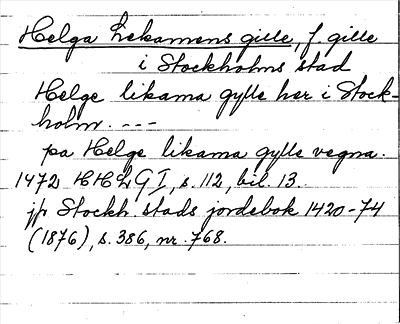 Helga Lekamens gille, f. gille
i Stockholms stad
Helge likama gylle her i Stock-
holm. ---
pa Helge likama gylle vegna.
1472 HHLG I, s. 112, bil. 13.
jfr Stockh. stads jordebok 1420-74
(1876), s. 386, nr. 768.